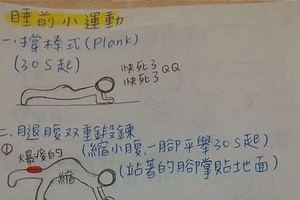 睡前小運動
一、撐棒式(Plank)
(30S起)
快死了QQ
快死了
二、腿腹双重鍛鍊
① 爆痠的
(縮小腹,一腳平舉30S起)
縮
(站著的腳掌貼地面)